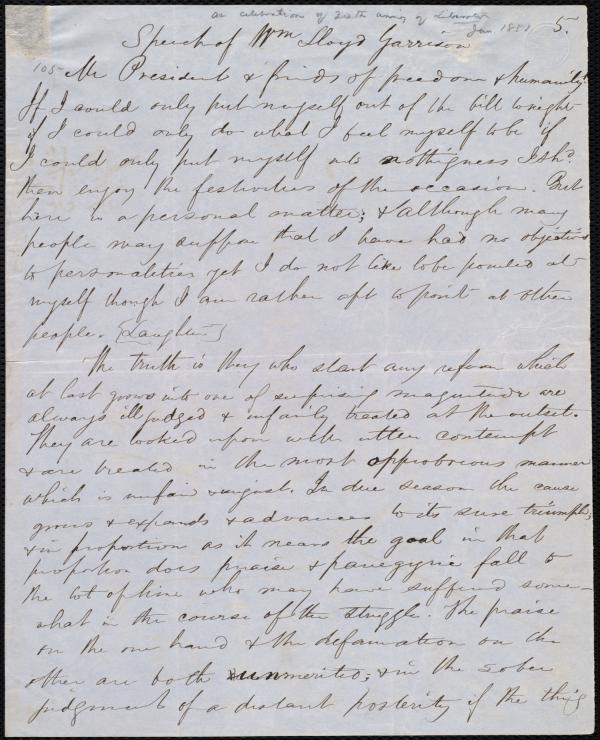 at celebration of 20th anniv. of Liberator
Jan. 1851
5.
Speech of Wm Lloyd Garrison
105 Mr President & friends of freedom & humanity!
If I could only put myself out of the bill tonight
if I could only do what I feel myself to be if
I could only put myself into nothigness I shd.
then enjoy the festivities of the occasion. But
here is a personal matter; & although many
people may suppose that I have had no objections
to personalities yet I do not like to be pointed at
myself though I am rather apt to point at other
people. [Laughter]
The truth is they who start any reform which
at last grows into one of surprising magnitude are
always ill judged & unfairly treated at the outset.
They are looked upon with utter contempt
& are treated in the most opprobrious manner
which is unfair & unjust. In due season the cause
grows & expands & advances to its sure triumph;
& in proportion as it nears the goal in that
proportion does praise & panegyric fall to
the lot of him who may have suffered some-
what in the course of the struggle. The praise
on the one hand & the defamation on the
other are both unmerited; & in the sober
judgment of a distant posterity if the thing